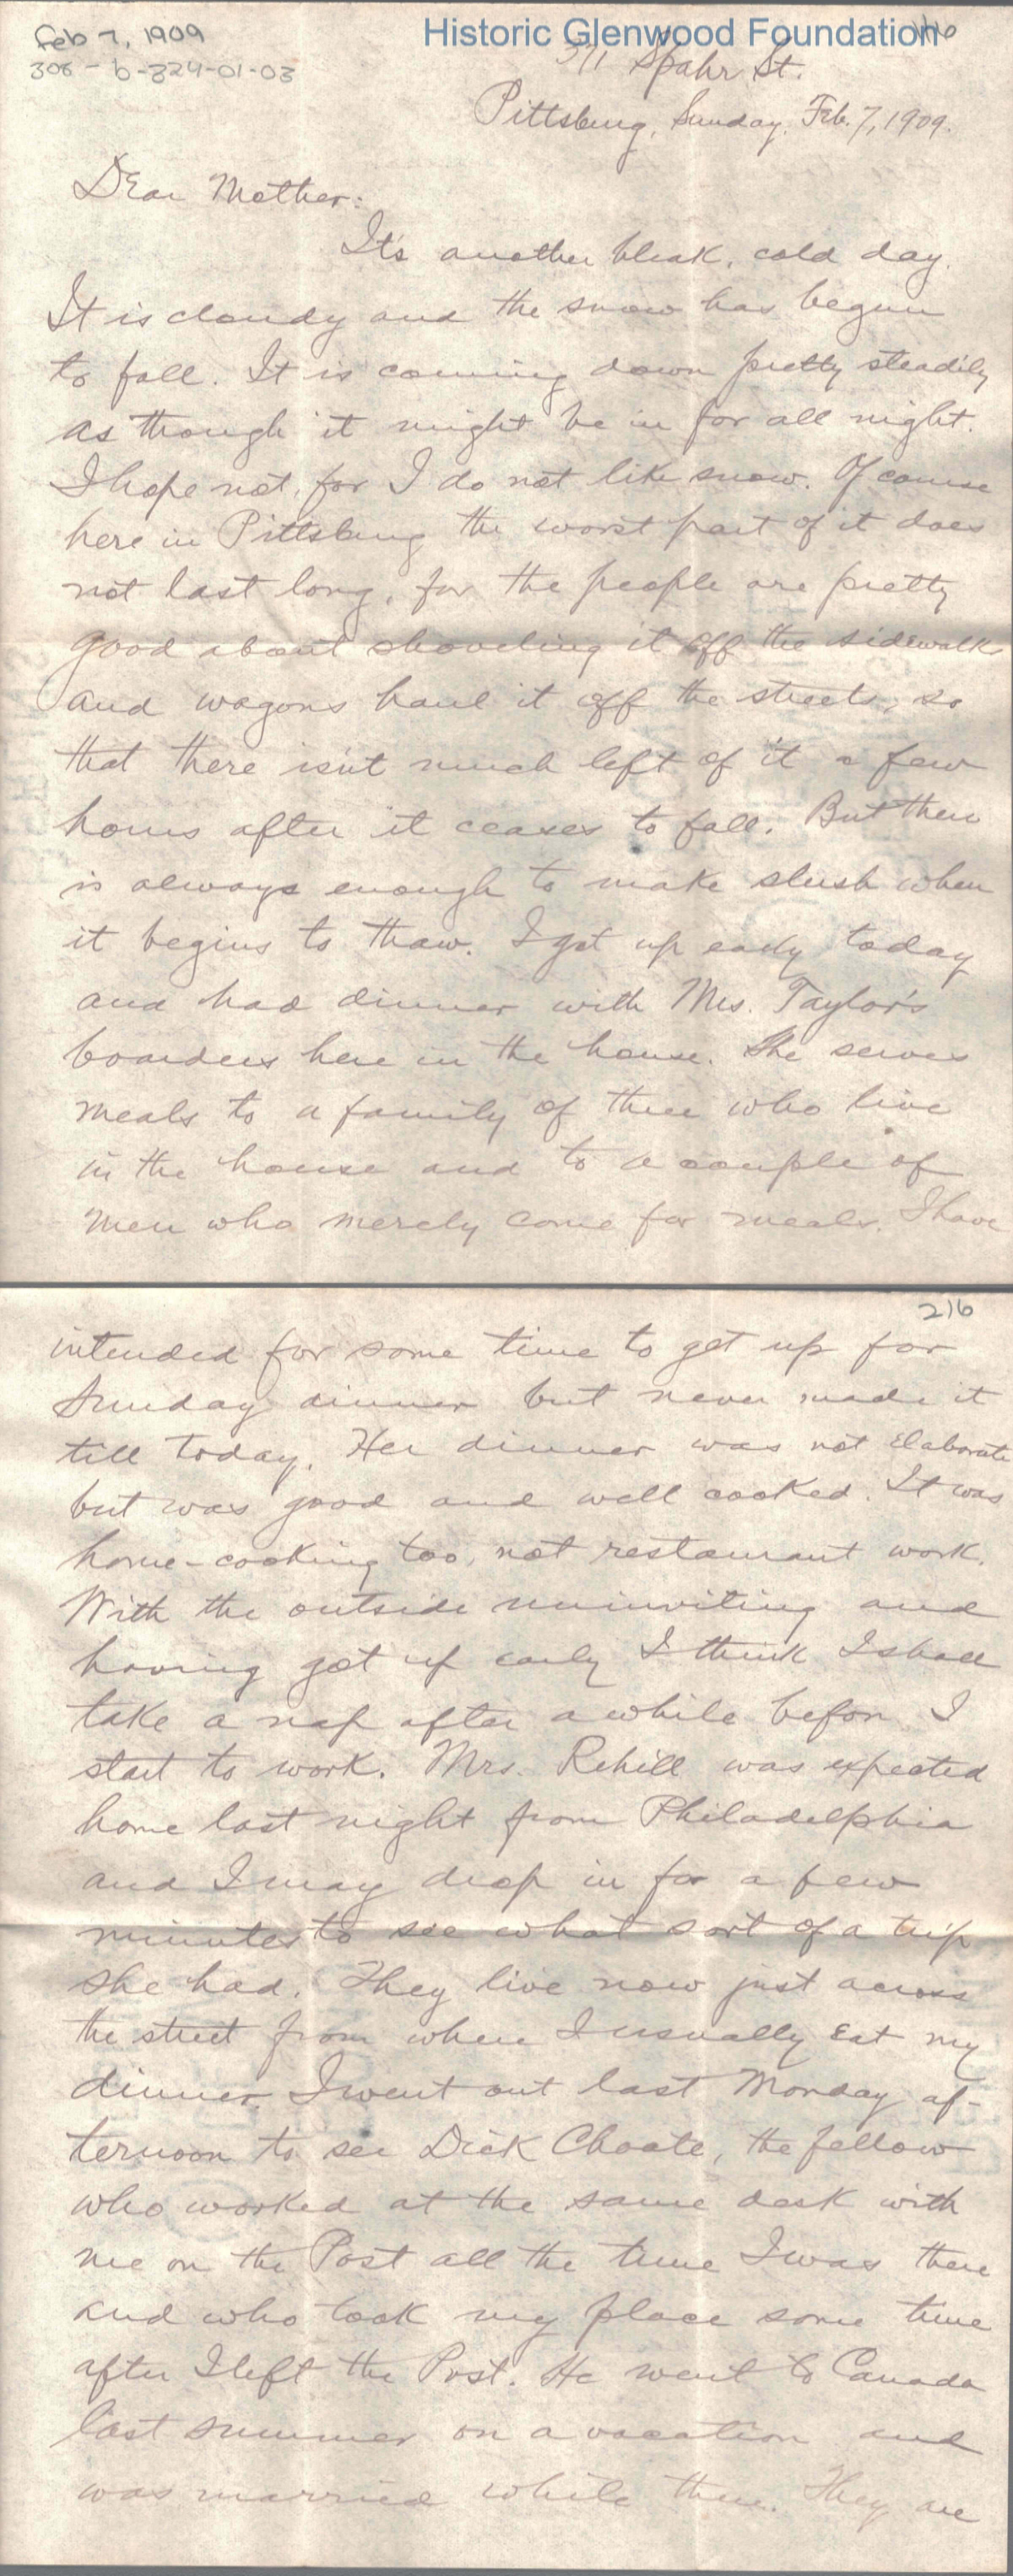 Feb 7, 1909
306-b-324-01-03
Historic Glenwood Foundation
371 Spahr St.
Pittsburg, Sunday, Feb. 7, 1909.
Dear Mother:
It's another bleak, cold day.
It is cloudy and the snow has begun
to fall. It is coming down pretty steadily
as though it might be in for all night.
I hope not, for I do not like snow. Of course
here in Pittsburg the worst part of it does
not last long, for the people are pretty
good about shoveling it off the sidewalks
and wagons haul it off the streets, so
that there isn't much left of it a few
hours after it ceases to fall. But there
is always enough to make slush when
it begins to thaw. I got up early today
and had dinner with Mrs. Taylor's
boarders here in the house. She serves
meals to a family of three who live
in the house and to a couple of
men who merely come for meals. I have
216
intended for some time to get up for
Sunday dinner but never made it
till today. Her dinner was not elaborate
but was good and well cooked. It was
home-cooking too, not restaurant work.
With the outside uninviting and
having got up early I think I shall
take a nap after awhile before I
start to work. Mrs. Rehill was expected
home last night from Philadelphia
and I may drop in for a few
minutes to see what sort of a trip
she had. They live now just across
the street from where I usually eat my
dinner. I went out last Monday af-
ternoon to see Dick Choate, the fellow
who worked at the same desk with
me on the Post all the time I was there
and who took my place some time
after I left the Post. He went to Canada
last summer on a vacation and
was married while there. They are